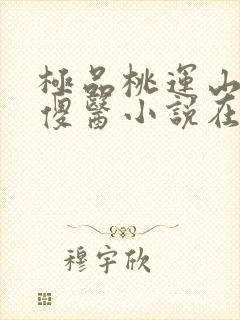 極品桃運山
傻醫小說在
穆宇欣